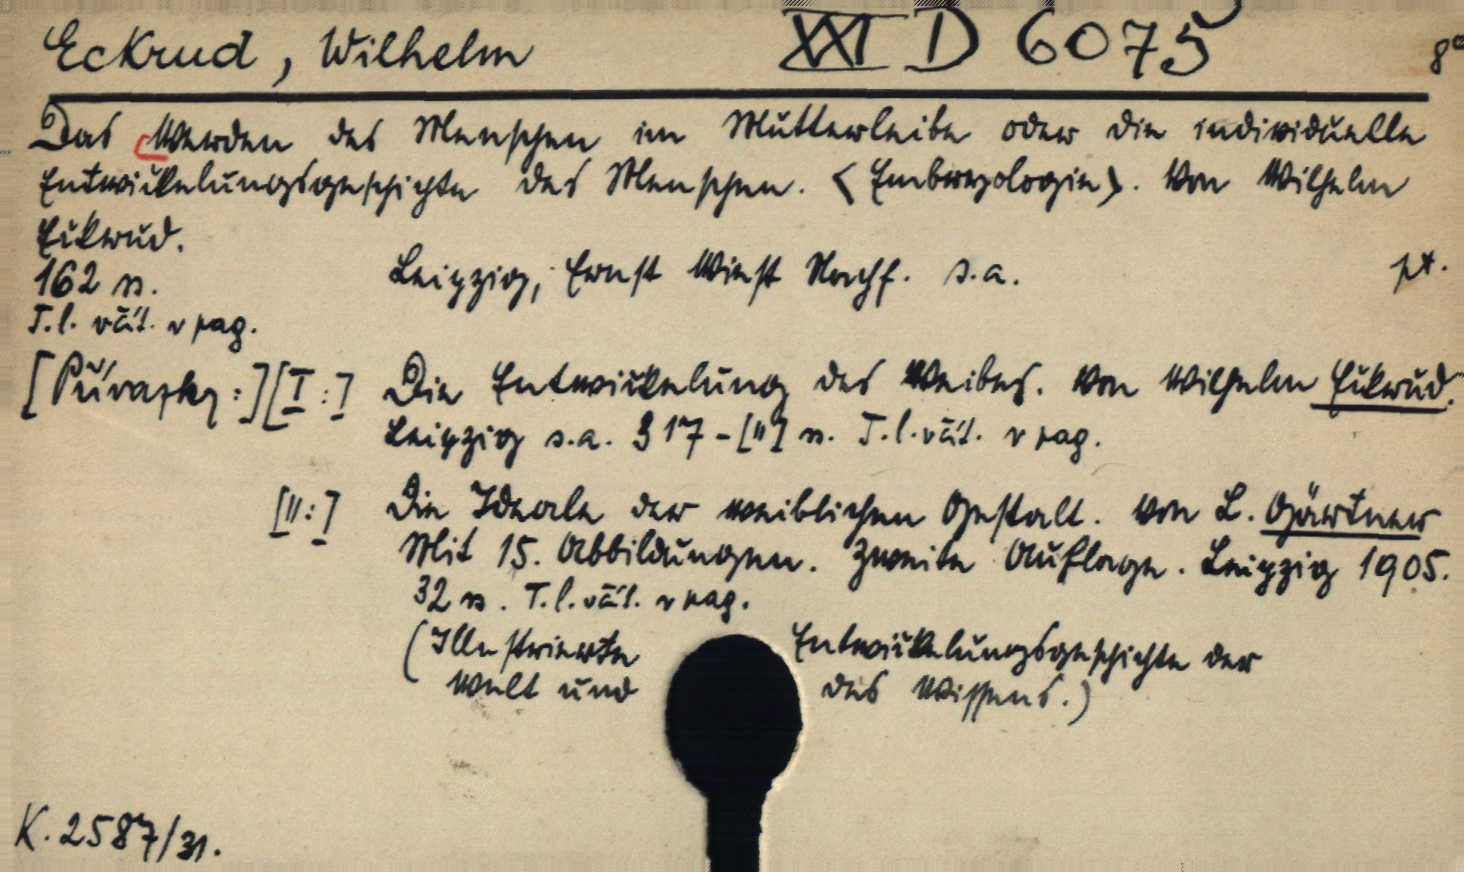 Eckrud, Wilhelm XXI D 6075 8°
Das Werden des Menschen im Mutterleibe oder die individuelle
Entwickelungsgeschichte des Menschen. <Embryologie>. Von Wilhelm
Eckrud.
162 s. Leipzig, Ernst Wiest Nachf. s.a. pt.
T.l. včít. v pag.
[Přívazky:] [I:] Die Entwickelung des Weibes. Von Wilhelm Eckrud.
Leipzig s.a. 317-[II] s. T.l. včít. v pag.
[II:] Die Ideale der weiblichen Gestalt. Von L. Gärtner
Mit 15. Abbildungen. Zweite Auflage. Leipzig 1905.
32 s. T.l. včít. v pag.
(Illustrierte Entwickelungsgeschichte der
Welt und des Wissens.)
K. 2587/31.